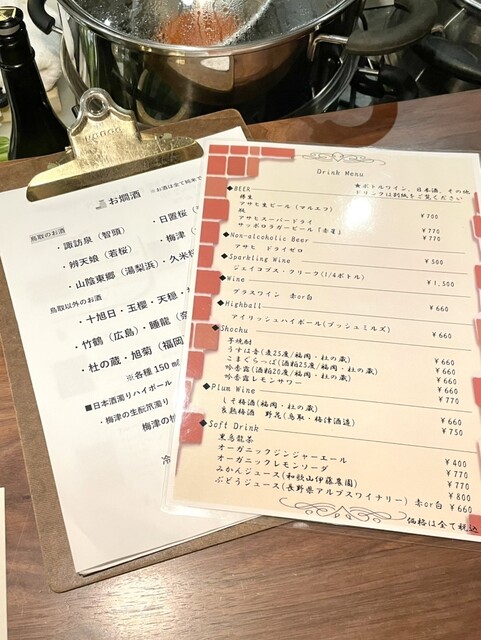 お燗酒
※お酒は全て純米で
鳥取のお酒
・諏訪泉（智頭）
・日置桜（
・辨天娘（若桜）
・梅津（
・山陰東郷（湯梨浜）・久米桜
鳥取以外のお酒
・十旭日・玉櫻・天穏・
・竹鶴（広島）・睡龍（奈
・杜の蔵・旭菊（福岡
※各種150ml
■日本酒濁りハイボール
・梅津の生酛濁り
梅津の
冷
Drink Menu
★ボトルワイン、日本酒、その他
ドリンクは別紙をご覧ください
◆BEER
樽生
アサヒ生ビール（マルエフ） ¥700
瓶
アサヒスーパードライ ¥770
サッポロラガービール「赤星」 ¥770
◆Non-alcoholic Beer
アサヒ ドライゼロ ¥500
◆Sparkling Wine
ジェイコブス・クリーク(1/4ボトル) ¥1,500
◆Wine
グラスワイン 赤or白 ¥660
◆Highball
アイリッシュハイボール(ブッシュミルズ) ¥660
◆Shochu
芋焼酎
うすは音(麦25度/福岡・杜の蔵) ¥660
こまぐらっぱ(酒粕25度/福岡・杜の蔵) ¥660
吟香露(酒粕20度/福岡・杜の蔵) ¥660
吟香露レモンサワー ¥660
◆Plum Wine ¥770
しそ梅酒(福岡・杜の蔵) ¥660
良熟梅酒 野花(鳥取・梅津酒造) ¥750
◆Soft Drink
黒烏龍茶 ¥400
オーガニックジンジャーエール ¥770
オーガニックレモンソーダ ¥770
みかんジュース(和歌山伊藤農園) ¥800
ぶどうジュース(長野県アルプスワイナリー) 赤or白 ¥660
価格は全て税込